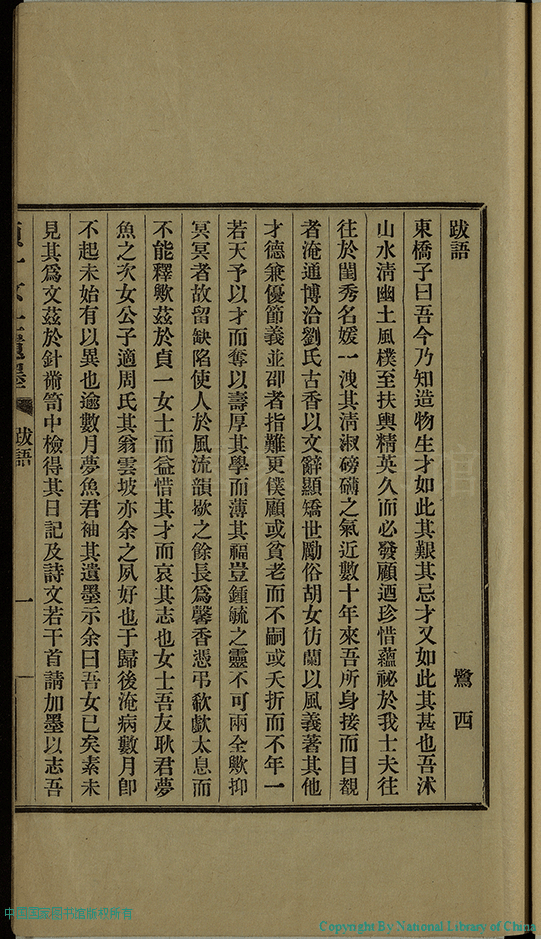 跋語
鷺西
東橋子曰吾今乃知造物生才如此其艱其忌才又如此其甚也吾沭
山水淸幽土風樸至扶輿精英久而必發顧迺珍惜蘊祕於我士夫往
往於閨秀名媛一洩其淸淑磅礴之氣近數十年來吾所身接而目覩
者淹通博洽劉氏古香以文辭顯矯世勵俗胡女仿蘭以風義著其他
才德兼優節義並卲者指難更僕顧或貧老而不嗣或夭折而不年一
若天予以才而奪以壽厚其學而薄其福豈鍾毓之靈不可兩全歟抑
冥冥者故留缺陷使人於風流韻歇之餘長爲馨香憑弔欷歔太息而
不能釋歟茲於貞一女士而益惜其才而哀其志也女士吾友耿君夢
魚之次女公子適周氏其翁雲坡亦余之夙好也于歸後淹病數月卽
不起未始有以異也逾數月夢魚君袖其遺墨示余曰吾女已矣素未
見其爲文茲於針黹笥中檢得其日記及詩文若干首請加墨以志吾
貞一女士遺墨
跋語
一
中国国家图书馆版权所有
Copyright By National Library of China